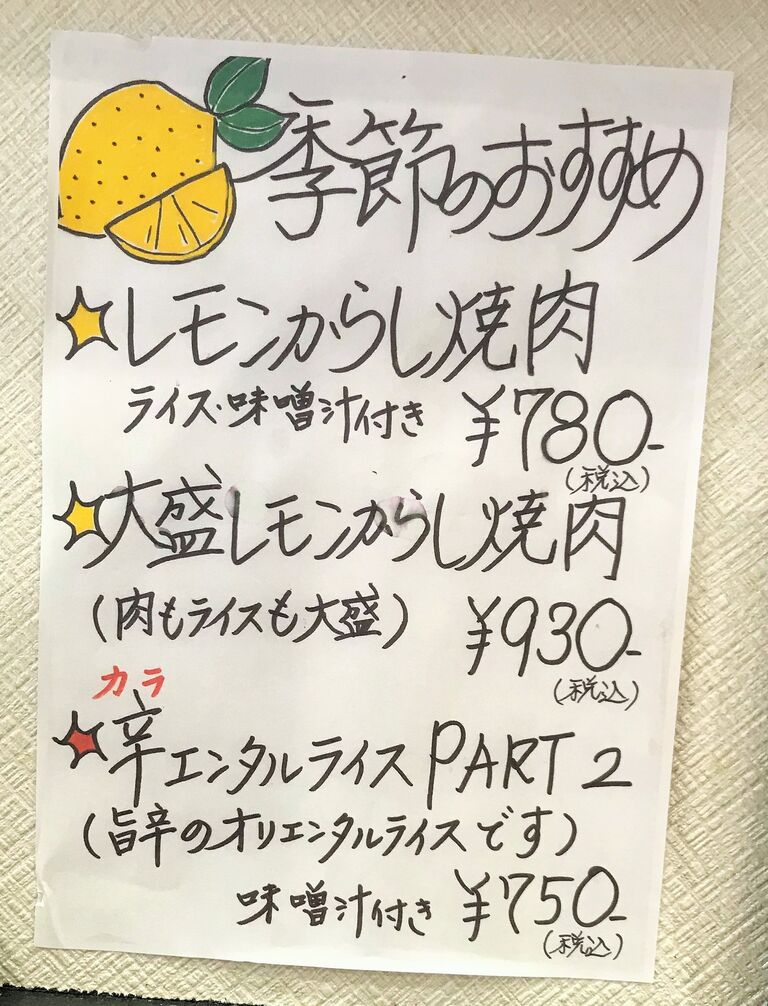 季節のおすすめ
レモンからし焼肉
ライス・味噌汁付き ¥780-
(税込)
大盛レモンからし焼肉
(肉もライスも大盛) ¥930-
(税込)
カラ
辛エンタルライスPART2
(旨辛のオリエンタルライスです)
味噌汁付き ¥750-
(税込)